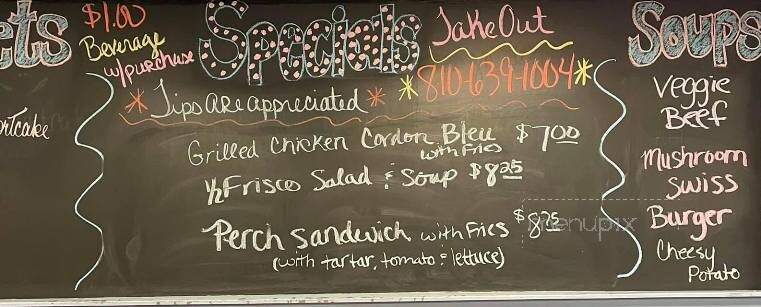 ets
ortcake
$1.00
Beverage
w/purchase
Specials
Take Out
810-639-1004
Tips are appreciated
Grilled Chicken Cordon Bleu $7.00
with Fries
1/2 Frisco Salad & Soup $8.25
Perch Sandwich with Fries $8.75
(with tartar, tomato & lettuce)
menupix
Soups
Veggie
Beef
Mushroom
Swiss
Burger
Cheesy
Potato